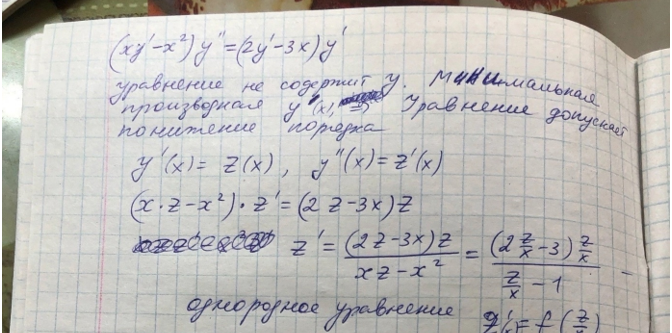 (xy' - x²) y'' = (2y' - 3x) y'
уравнение не содержит y. Минимальная
производная y'(x), Уравнение допускает
понижение порядка
y'(x) = z(x), y''(x) = z'(x)
(x · z - x²) · z' = (2 z - 3x) z
z' = (2z - 3x) z / (xz - x²) = (2 z/x - 3) z/x / (z/x - 1) -
однородное уравнение z'ₓ = f(z/x)